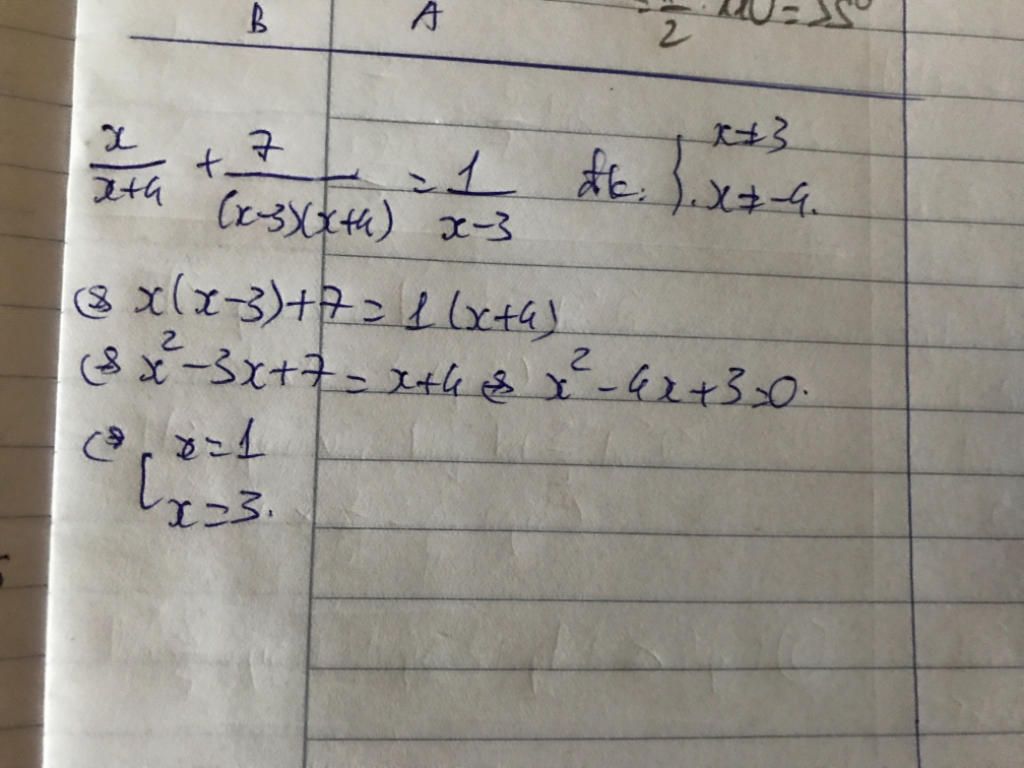 B A
x/(x+4) + 7/((x-3)(x+4)) = 1/(x-3) đk: { x≠3 . x≠-4.
⇔ x(x-3)+7=1(x+4)
⇔ x²-3x+7=x+4 ⇔ x²-4x+3=0.
⇔ [ x=1
x=3.